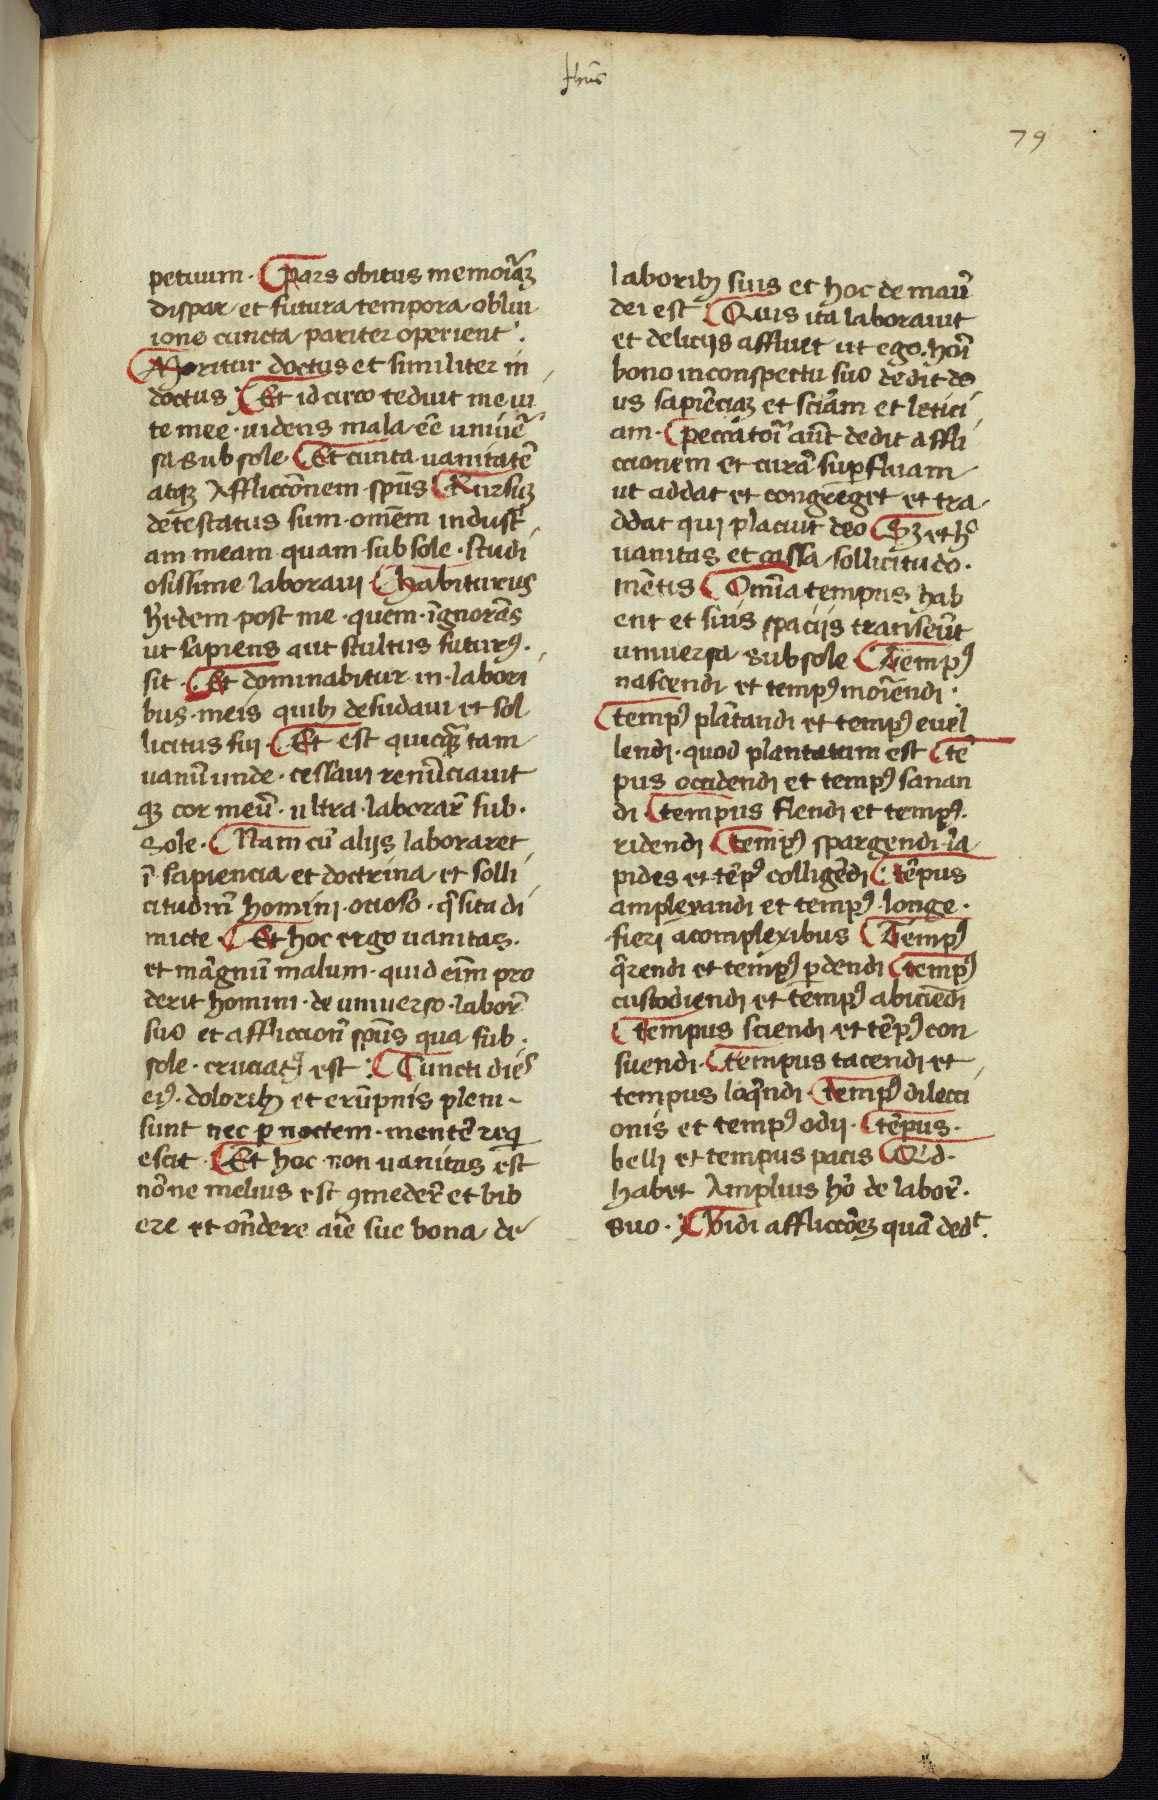 Jhūs
79
petuum. Pars obitus memoriāꝫ
dispar et futura tempora obliui
ione cuncta pariter operient.
Moritur doctus et similiter in
doctus Et idcirco teduit me ui
te mee. uidens mala eē uniuē
sa sub sole. Et cuncta uanitatē
atqꝫ Affliccōnem. spūs Rursuꝫ
detestatus sum. omēm industri
am meam quam sub sole. studi
osissime laboraui Habiturus
hēdem post me. quem. īgnorās
ut sapiens aut stultus futurꝰ.
sit. Et dominabitur in labori
bus. meis quibꝫ desudaui et sol
licitus fui. Et est quicqꝫ tam
uanū unde. cessaui renūciauit
qꝫ cor meū. ultra. laborar̄ sub.
Sole. Nam cū alijs laboraret
ī sapiencia et doctrina et solli
citudin̄ homini. ocioso. q̄sita di
micte. Et hoc ergo uanitas.
et māgnū malum. quid eīm pro
derit homini. de uniuerso. labor̄
suo et affliccion̄ spūs qua sub.
sole. cruciatꝰ est. Cuncti dies
eiꝰ. doloribꝫ et erūpnis pleni
sunt nec ꝑ noctem. mentē req̇
escit. Et hoc non uanitas est
nōne melius est ꝯmeder̄ et bib
ere et on̄dere aīe sue bona de
laboribꝫ suis et hoc de manū
dei est Quis ita laborauit
et delicijs affluit ut ego. hōi
bono in conspectu suo dedit de
us sapiēciaꝫ et sciām et letici
am. Peccātori aūt dedit affli
ccionem et curā suꝑfluam
ut addat et congreget et tra
ddat qui placuit deo Sꝫ et h̄
uanitas et cassa sollicitudo.
mētis Om̄ia tempus hab
ent et suis spacijs transeūt
uniuersa sub sole Tempꝰ
nascendi et tempꝰ moriendi.
tempꝰ plātandi et tempꝰ euel
lendi. quod plantatum est tē
pus occidendi et tempꝰ sanan
di tempus flendi et tempꝰ.
ridendi tempꝰ spargendi la
pides et tēpꝰ colligēdi tēpus
amplexandi et tempꝰ longe.
fieri a complexibus Tempꝰ
q̄rendi et tempꝰ ꝑdendi tempꝰ
custodiendi et tempꝰ abiciēdi
Tempus sciendi et tēpꝰ con
suendi. tempus tacendi et
tempus loq̄ndi. tempꝰ dilecci
onis et tempꝰ odij. tēpus.
belli et tempus pacis Qid.
habet Amplius hō de labor̄.
suo. Vidi affliccōeꝫ quā dedt.